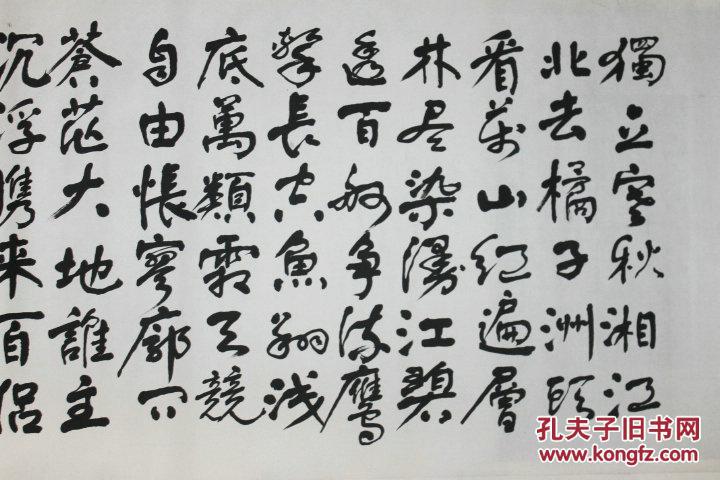 獨立寒秋湘江
北去橘子洲頭
看萬山紅遍層
林尽染漫江碧
透百舸争流鷹
擊長空魚翔浅
底萬類霜天競
自由悵寥廓問
蒼茫大地誰主
沉浮携来百侣
孔夫子旧书网
www.kongfz.com